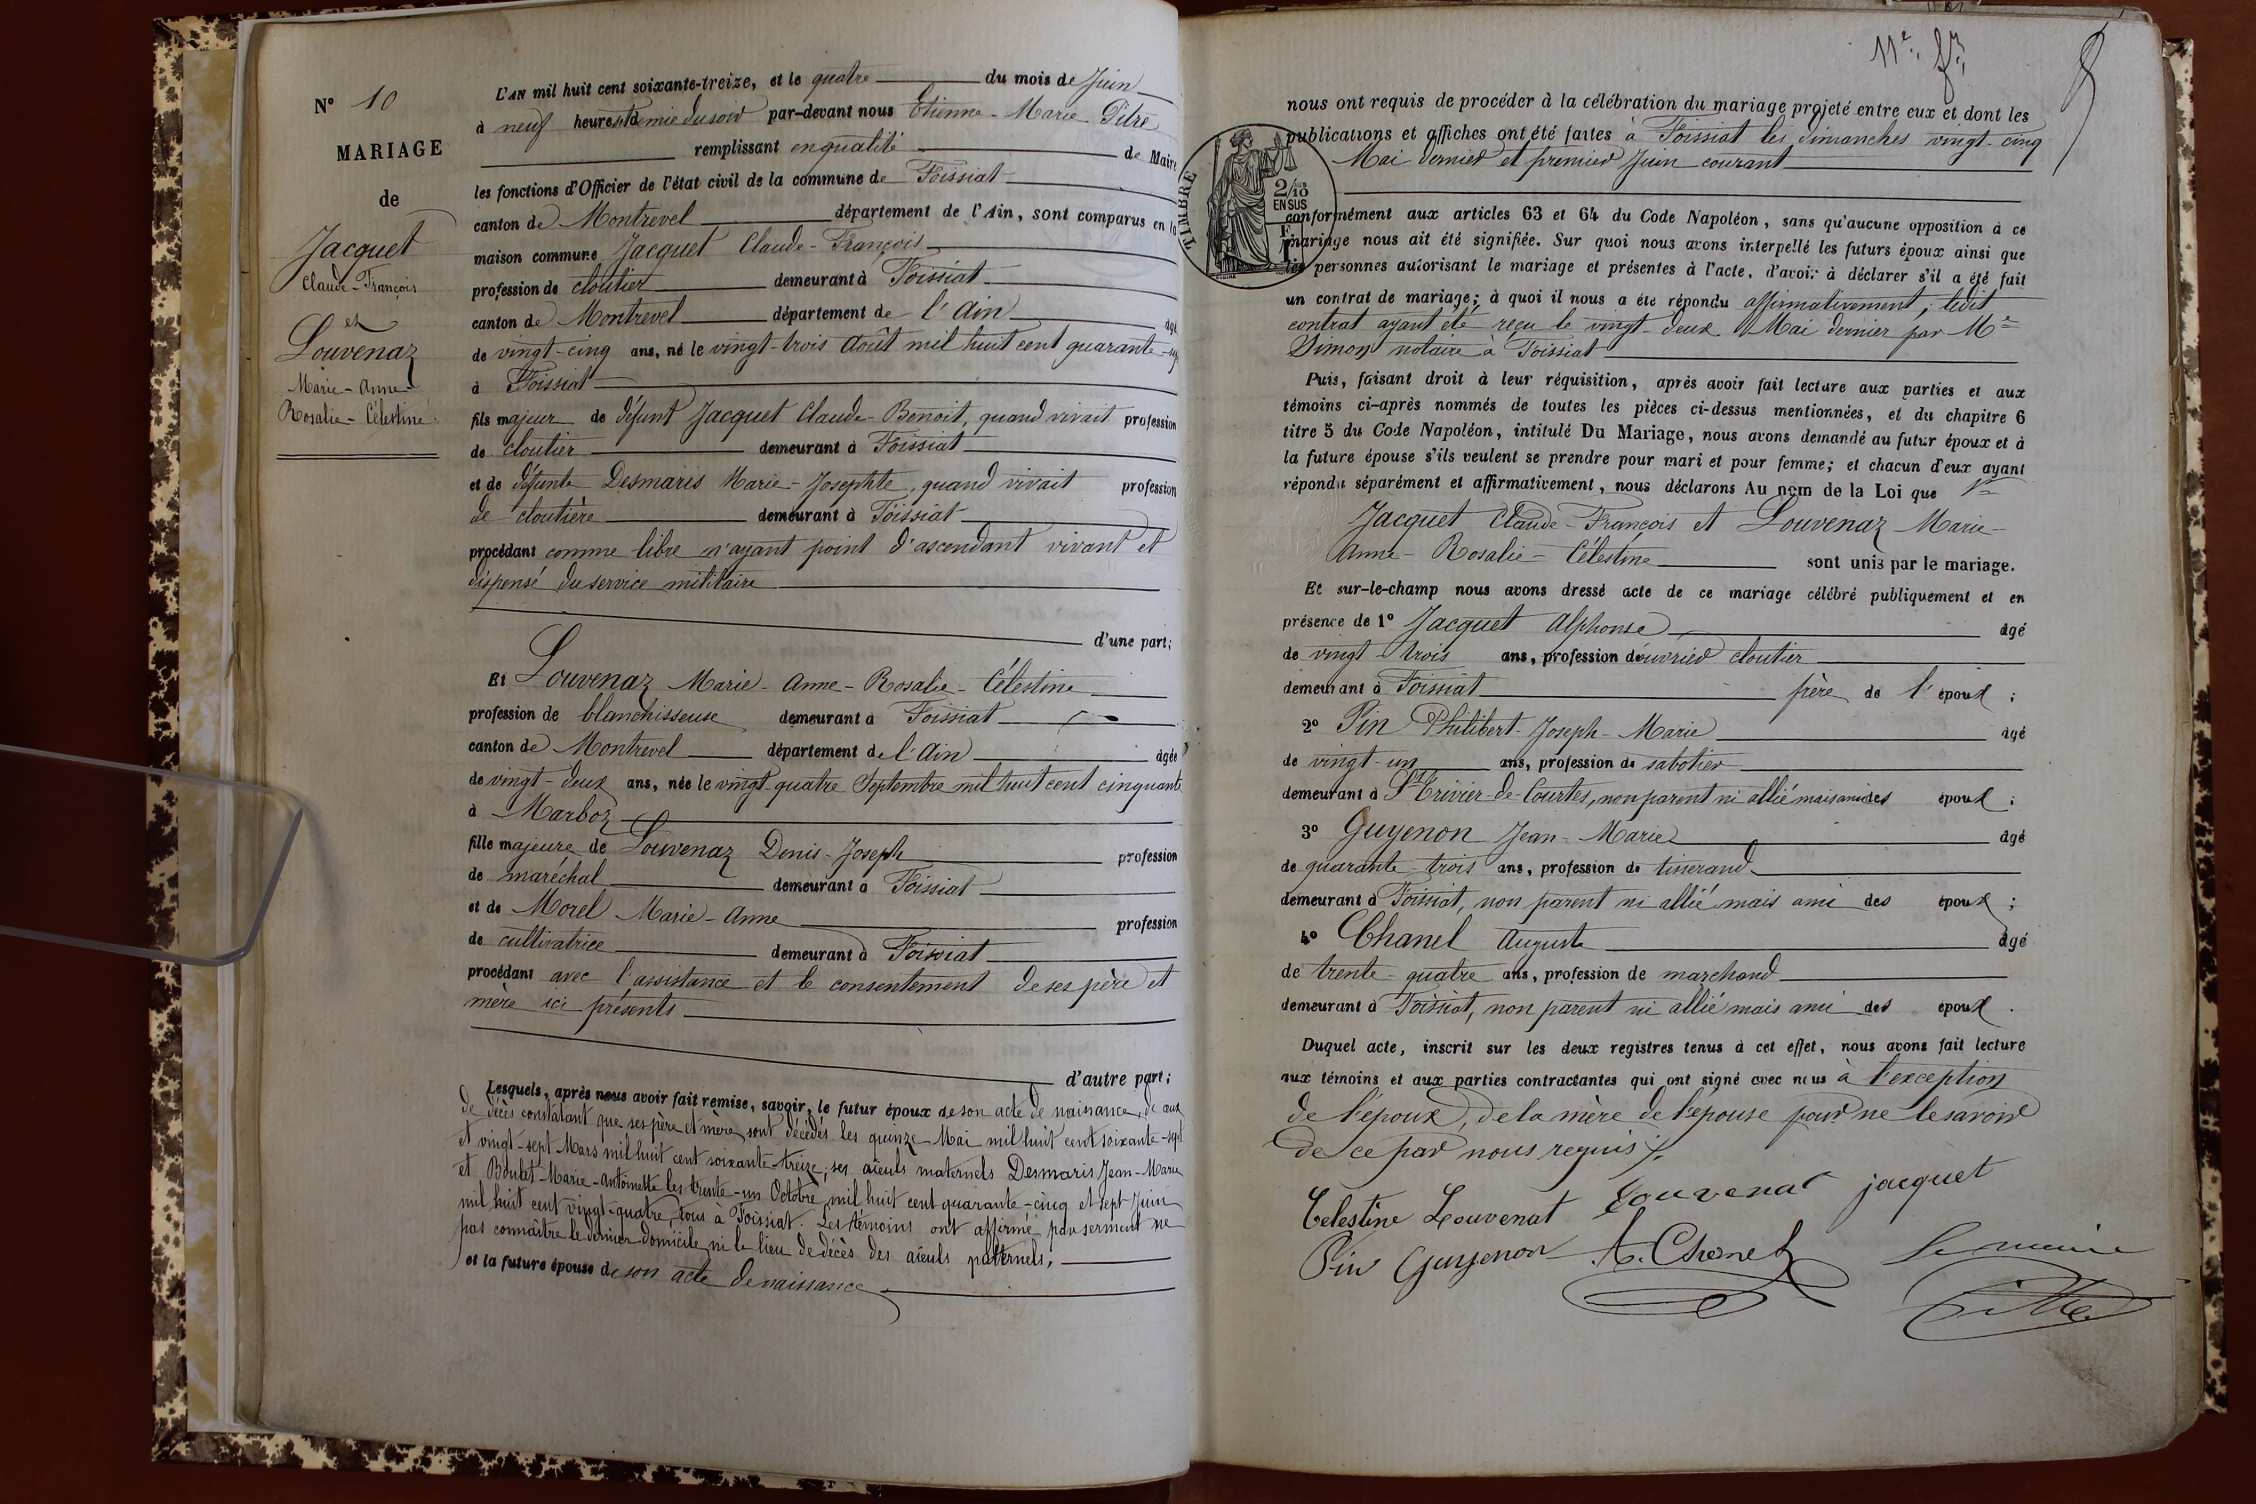 N° 10
MARIAGE
de
Jacquet
Claude-François
et
Louvenaz
Marie-Anne-
Rosalie-Célestine
L'AN mil huit cent soixante-treize, et le quatre du mois de Juin
à neuf heures et demie du soir par-devant nous Etienne-Marie Pitre
remplissant en qualité de Maire
les fonctions d'Officier de l'état civil de la commune de Foissiat
canton de Montrevel département de l'Ain, sont comparus en la
maison commune Jacquet Claude-François
profession de cloutier demeurant à Foissiat
canton de Montrevel département de l'Ain âgé
de vingt-cinq ans, né le vingt-trois Août mil huit cent quarante-sept
à Foissiat
fils majeur de défunt Jacquet Claude-Benoit, quand vivait profession
de cloutier demeurant à Foissiat
et de défunte Desmaris Marie-Josephte, quand vivait profession
de cloutière demeurant à Foissiat
procédant comme libre n'ayant point d'ascendant vivant et
dispensé du service militaire
d'une part;
Et Louvenaz Marie-Anne-Rosalie-Célestine
profession de blanchisseuse demeurant à Foissiat
canton de Montrevel département de l'Ain âgée
de vingt-deux ans, née le vingt-quatre Septembre mil huit cent cinquante
à Marboz
fille majeure de Louvenaz Denis-Joseph profession
de maréchal demeurant à Foissiat
et de Morel Marie-Anne profession
de cultivatrice demeurant à Foissiat
procédant avec l'assistance et le consentement de ses père et
mère ici présents
d'autre part;
Lesquels, après nous avoir fait remise, savoir, le futur époux de son acte de naissance, de aux
de décès constatant que ses père et mère sont décédés les quinze Mai mil huit cent soixante-sept
et vingt-sept Mars mil huit cent soixante-treize; ses aïeuls maternels Desmaris Jean-Marie
et Boutet Marie-Antoinette les trente-un Octobre mil huit cent quarante-cinq et sept Juin
mil huit cent vingt-quatre, tous à Foissiat. Les témoins ont affirmé par serment ne
pas connaître le dernier domicile ni le lieu de décès des aïeuls paternels,
et la future épouse de son acte de naissance
11e
nous ont requis de procéder à la célébration du mariage projeté entre eux et dont les
publications et affiches ont été faites à Foissiat les dimanches vingt-cinq
Mai dernier et premier Juin courant
TIMBRE
2/10
EN SUS
conformément aux articles 63 et 64 du Code Napoléon, sans qu'aucune opposition à ce
mariage nous ait été signifiée. Sur quoi nous avons interpellé les futurs époux ainsi que
les personnes autorisant le mariage et présentes à l'acte, d'avoir à déclarer s'il a été fait
un contrat de mariage; à quoi il nous a été répondu affirmativement, ledit
contrat ayant été reçu le vingt-deux Mai dernier par Me
Simon notaire à Foissiat
Puis, faisant droit à leur réquisition, après avoir fait lecture aux parties et aux
témoins ci-après nommés de toutes les pièces ci-dessus mentionnées, et du chapitre 6
titre 5 du Code Napoléon, intitulé Du Mariage, nous avons demandé au futur époux et à
la future épouse s'ils veulent se prendre pour mari et pour femme; et chacun d'eux ayant
répondu séparément et affirmativement, nous déclarons Au nom de la Loi que
Jacquet Claude-François et Louvenaz Marie-
Anne-Rosalie-Célestine sont unis par le mariage.
Et sur-le-champ nous avons dressé acte de ce mariage célébré publiquement et en
présence de 1° Jacquet Alphonse âgé
de vingt-trois ans, profession d'ouvrier cloutier
demeurant à Foissiat frère de l'époux;
2° Pin Philibert-Joseph-Marie âgé
de vingt-un ans, profession de sabotier
demeurant à St Trivier-de-Courtes, non parent ni allié mais ami des époux;
3° Guyenon Jean-Marie âgé
de quarante-trois ans, profession de tisserand
demeurant à Foissiat, non parent ni allié mais ami des époux;
4° Chanel Auguste âgé
de trente-quatre ans, profession de marchand
demeurant à Foissiat, non parent ni allié mais ami des époux.
Duquel acte, inscrit sur les deux registres tenus à cet effet, nous avons fait lecture
aux témoins et aux parties contractantes qui ont signé avec nous à l'exception
de l'époux, de la mère de l'épouse pour ne le savoir
de ce par nous requis.
Celestine Louvenat Louvenat jacquet
Pin Guyenon A. Chanel Le maire
Pitre